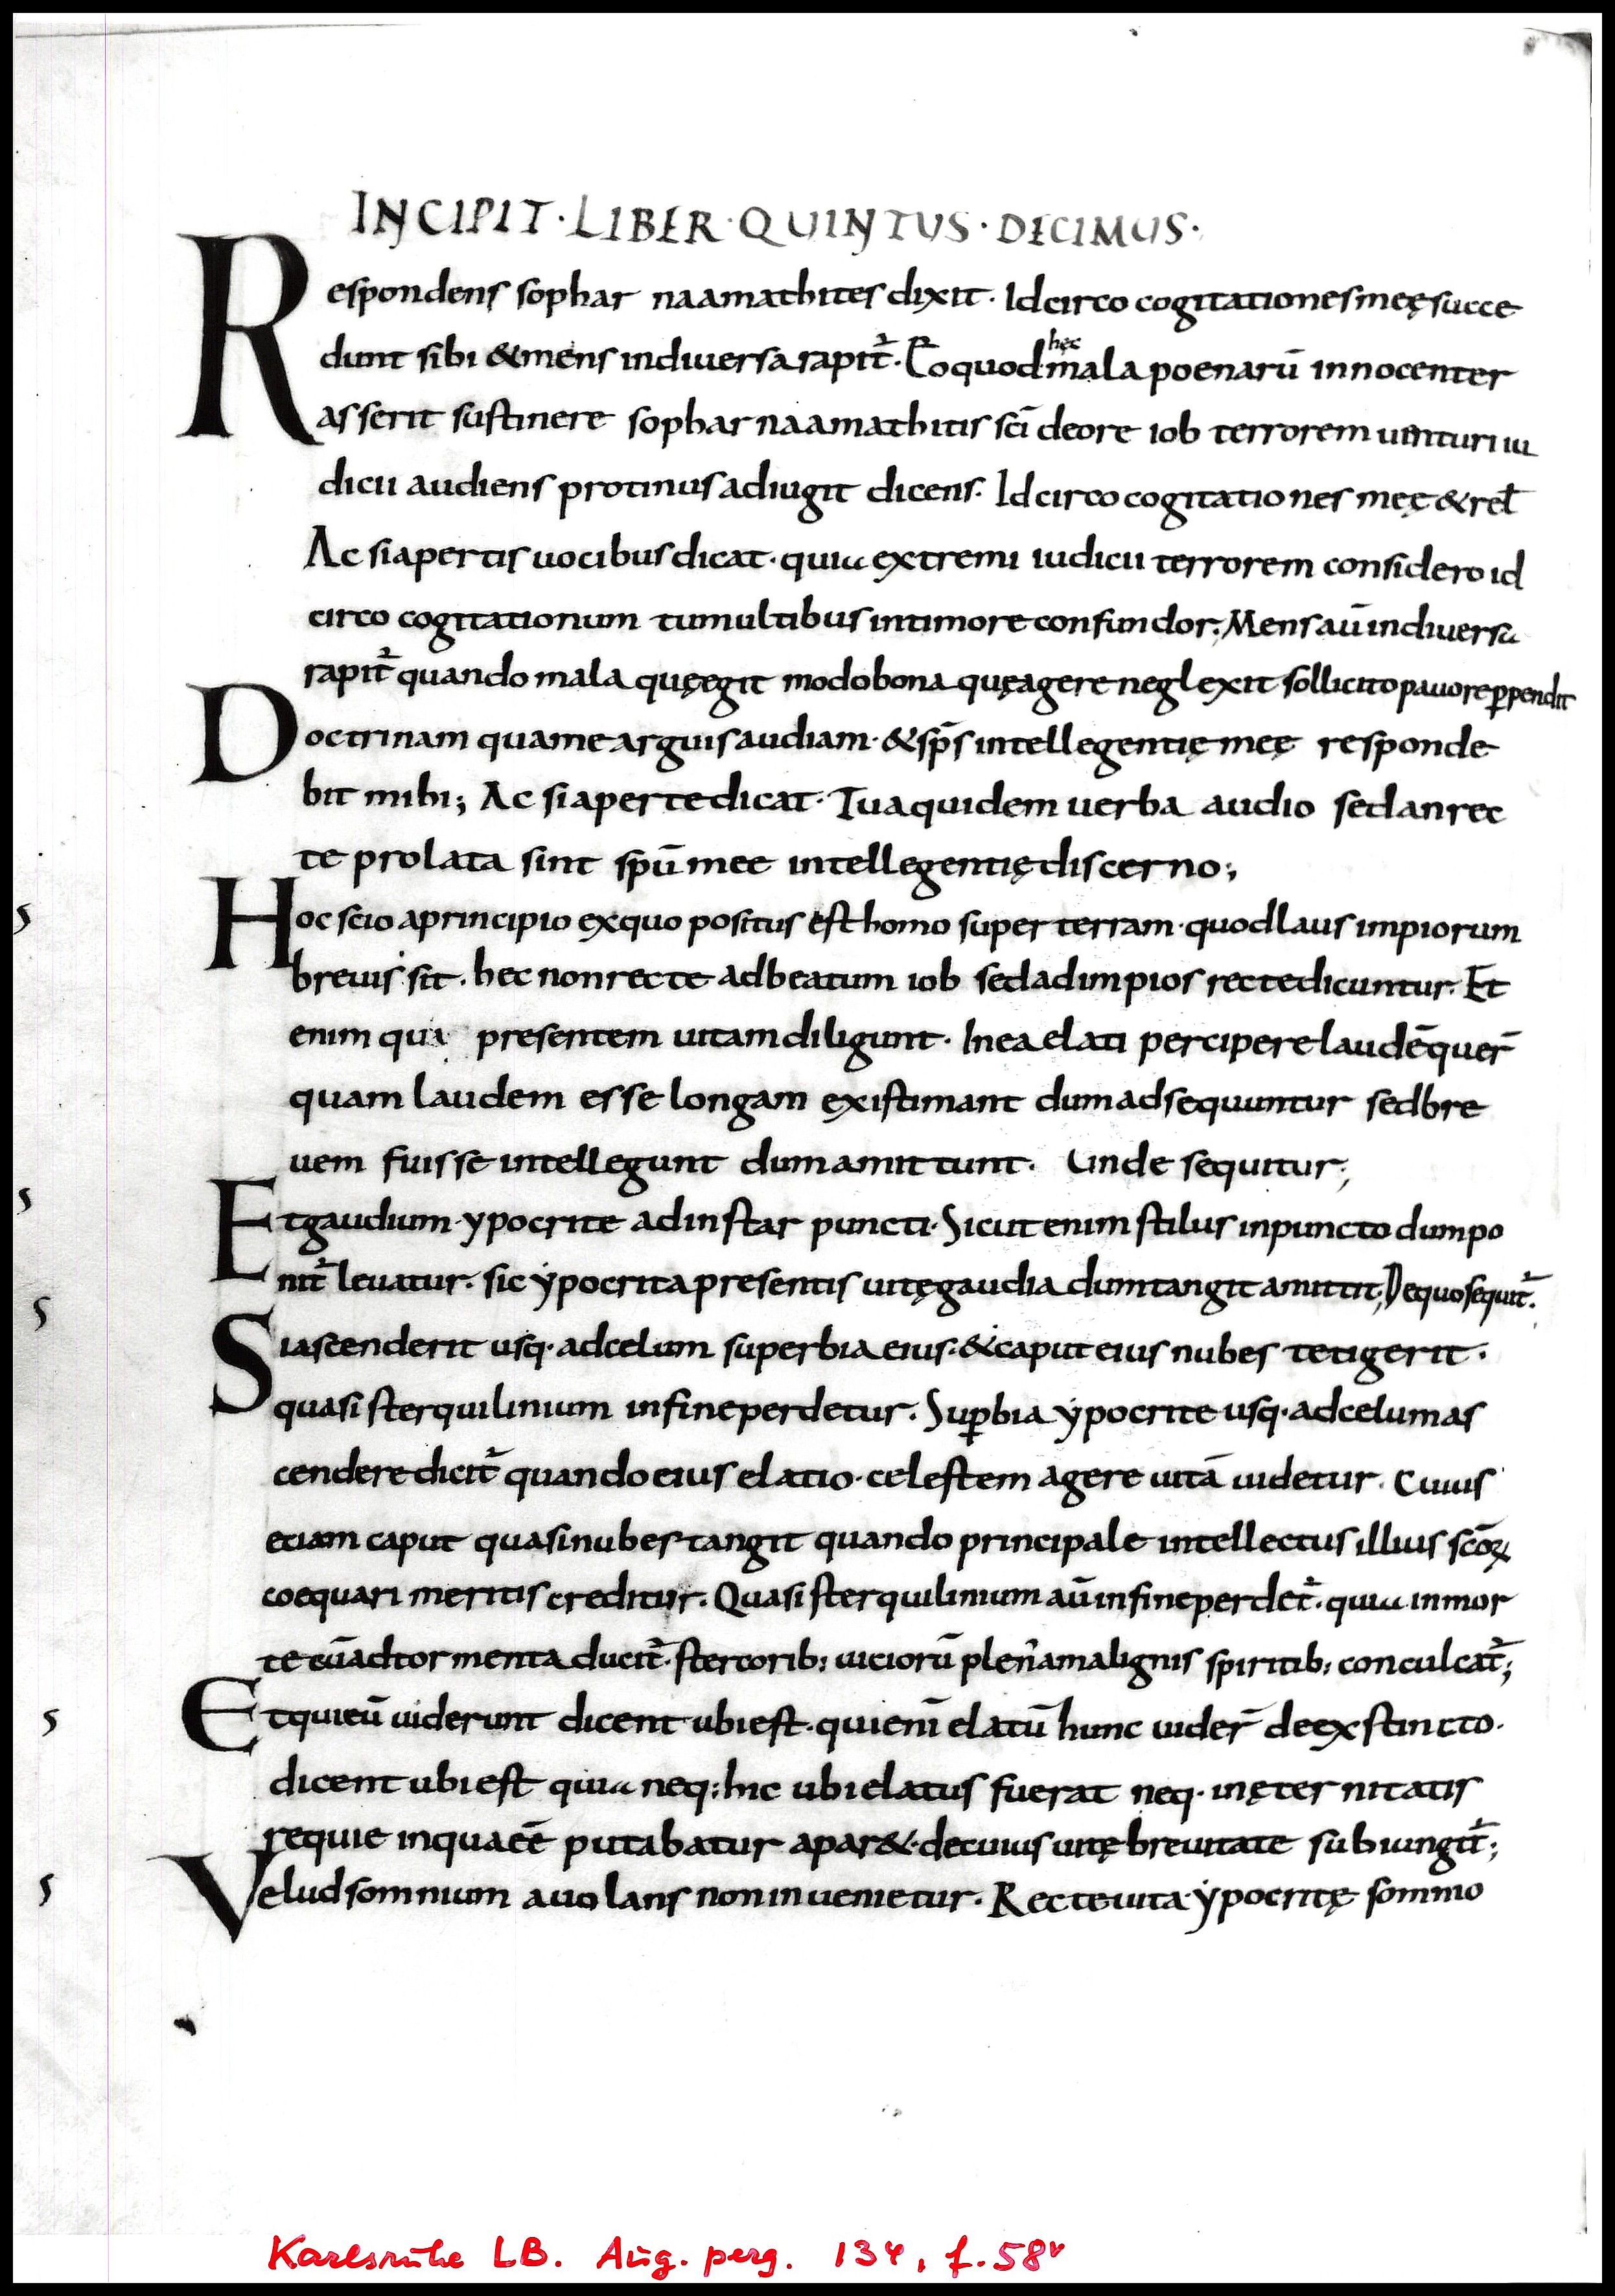 INCIPIT · LIBER · QUINTUS · DECIMUS ·
Respondens sophar naamathites dixit · Idcirco cogitationes meę succe
dunt sibi & mens indiuersa rapit᷑ · Eo quod hęc mala poenarū innocenter
asserit sustinere sophar naamathitis sc̄i deore iob terrorem uenturi iu
dicii audiens protinus adiugit dicens · Idcirco cogitationes meę & rel̄
Ac si apertis uocibus dicat · quia extremi iudicii terrorem considero id
circo cogitationum tumultibus in timore confundor; Mens aū in diuersa
rapit᷑ quando mala quę egit modo bona quę agere neglexit sollicito pauore ꝑpendit
Doctrinam qua me arguis audiam · & sp̄s intellegentię meę responde
bit mihi; Ac si aperte dicat · Tua quidem uerba audio sed an rec
te prolata sint spū mee intellegentię discerno;
Hoc scio a principio ex quo positus est homo super terram · quod laus impiorum
breuis sit · hec non recte ad beatum iob sed ad impios recte dicuntur · Et
enim qui presentem uitam diligunt · In ea elati percipere laudē quer̄
quam laudem esse longam existimant dum adsequuntur sed bre
uem fuisse intellegunt dum amittunt · Unde sequitur;
Et gaudium ypocrite ad instar puncti · Sicut enim stilus in puncto dum po
nit᷑ leuatur · sic ẏpocrita presentis uitę gaudia dum tangit amittit; De quo sequit᷑ ·
Si ascenderit usq· ad celum superbia eius · & caput eius nubes tetigerit ·
quasi sterquilinium in fine perdetur · Suꝑbia ẏpocrite usq· ad celum as
cendere dicit᷑ quando eius elatio · celestem agere uitā uidetur · Cuius
etiam caput quasi nubes tangit quando principale intellectus illius sc̄oꝝ
coequari meritis creditur · Quasi sterquilinium aū in fine perdet᷑ · quia in mor
te cū ad tormenta ducit᷑ · stercorib; uiciorū plen' a malignis spiritib; conculcat᷑;
Et qui eū uiderunt dicent ubi est · qui enī elatū hunc uider̄ de exstincto ·
dicent ubi est quia neq; hic ubi elatus fuerat neq· in ęternitatis
requie in qua eē putabatur apar& · de cuius uitę breuitate subiungit᷑;
Velud somnium auolans non inuenietur · Recte uita ẏpocritę somnio
Karlsruhe LB. Aug. perg. 134, f. 58v